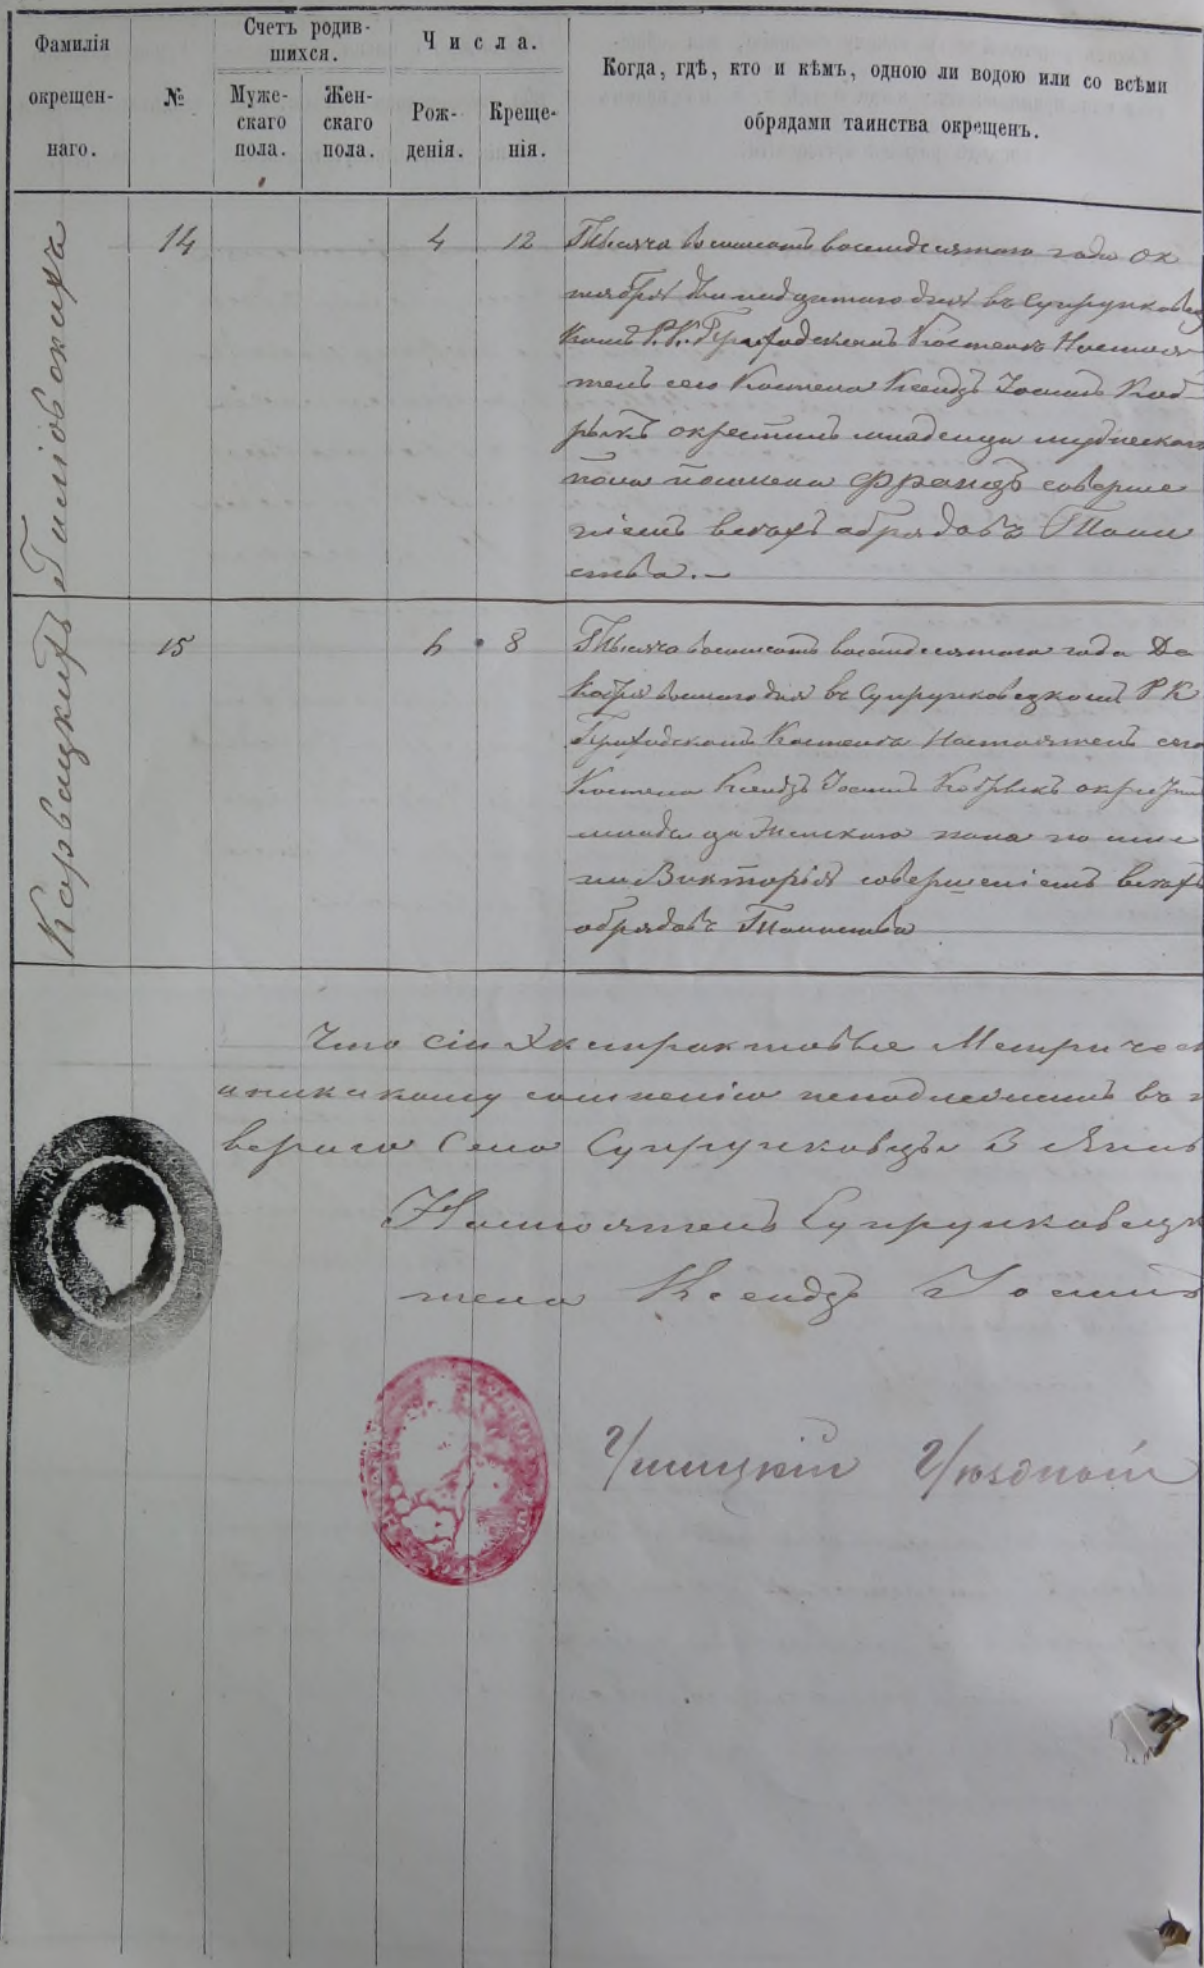 Фамилія
окрещен-
наго.
№
Счетъ родив-
шихся.
Муже-
скаго
пола.
Жен-
скаго
пола.
Числа.
Рож-
денія.
Креще-
нія.
Когда, гдѣ, кто и кѣмъ, одною ли водою или со всѣми
обрядами таинства окрещенъ.
14
4
12
Тысяча восемсотъ восемдесятого года Ок
тября двенадцатого дня въ Супрунковец
комъ Р. К. Приходскомъ Костелѣ Настоя
тель сего Костела Ксендзъ Іосифъ Коб-
рыкъ окрестилъ младенца мужеского
пола именем Францъ соверше
ніемъ всехъ обрядовъ Таин
ства.—
Карвацкихъ
15
6
8
Тысяча восемсотъ восемдесятого года Де
кабря восмого дня въ Супрунковецкомъ Р К
Приходскомъ Костелѣ Настоятель сего
Костела Ксендзъ Іосифъ Кобрыкъ окрестил
младенца Женского пола по име
ни Викторія совершеніемъ всехъ
обрядовъ Таинства
Что сіи Экстрактовые Метрическ
и никакому сомненію неподлежитъ въ
веряю Село Супрунковцы 3 Янв
Настоятель Супрунковецк
тела Ксендзъ Іосифъ
Ушицкій Уѣздный